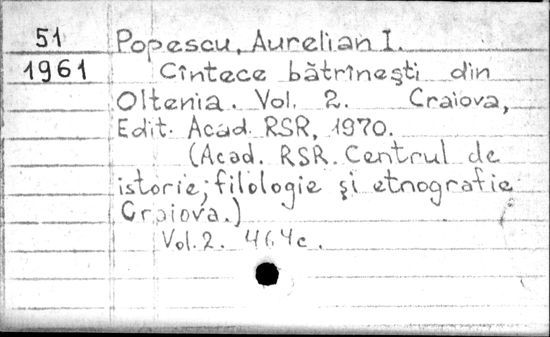 51 Popescu, Aurelian I.
1961 Cîntece bătrînești din
Oltenia. Vol. 2. Craiova,
Edit. Acad. RSR, 1970.
(Acad. RSR. Centrul de
istorie, filologie și etnografie
Craiova.)
Vol. 2. 464c.